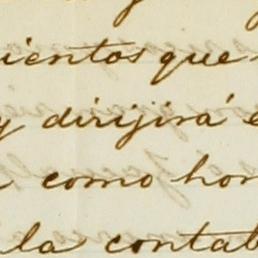 ientos que
y dirijirá e
como hon
la contab